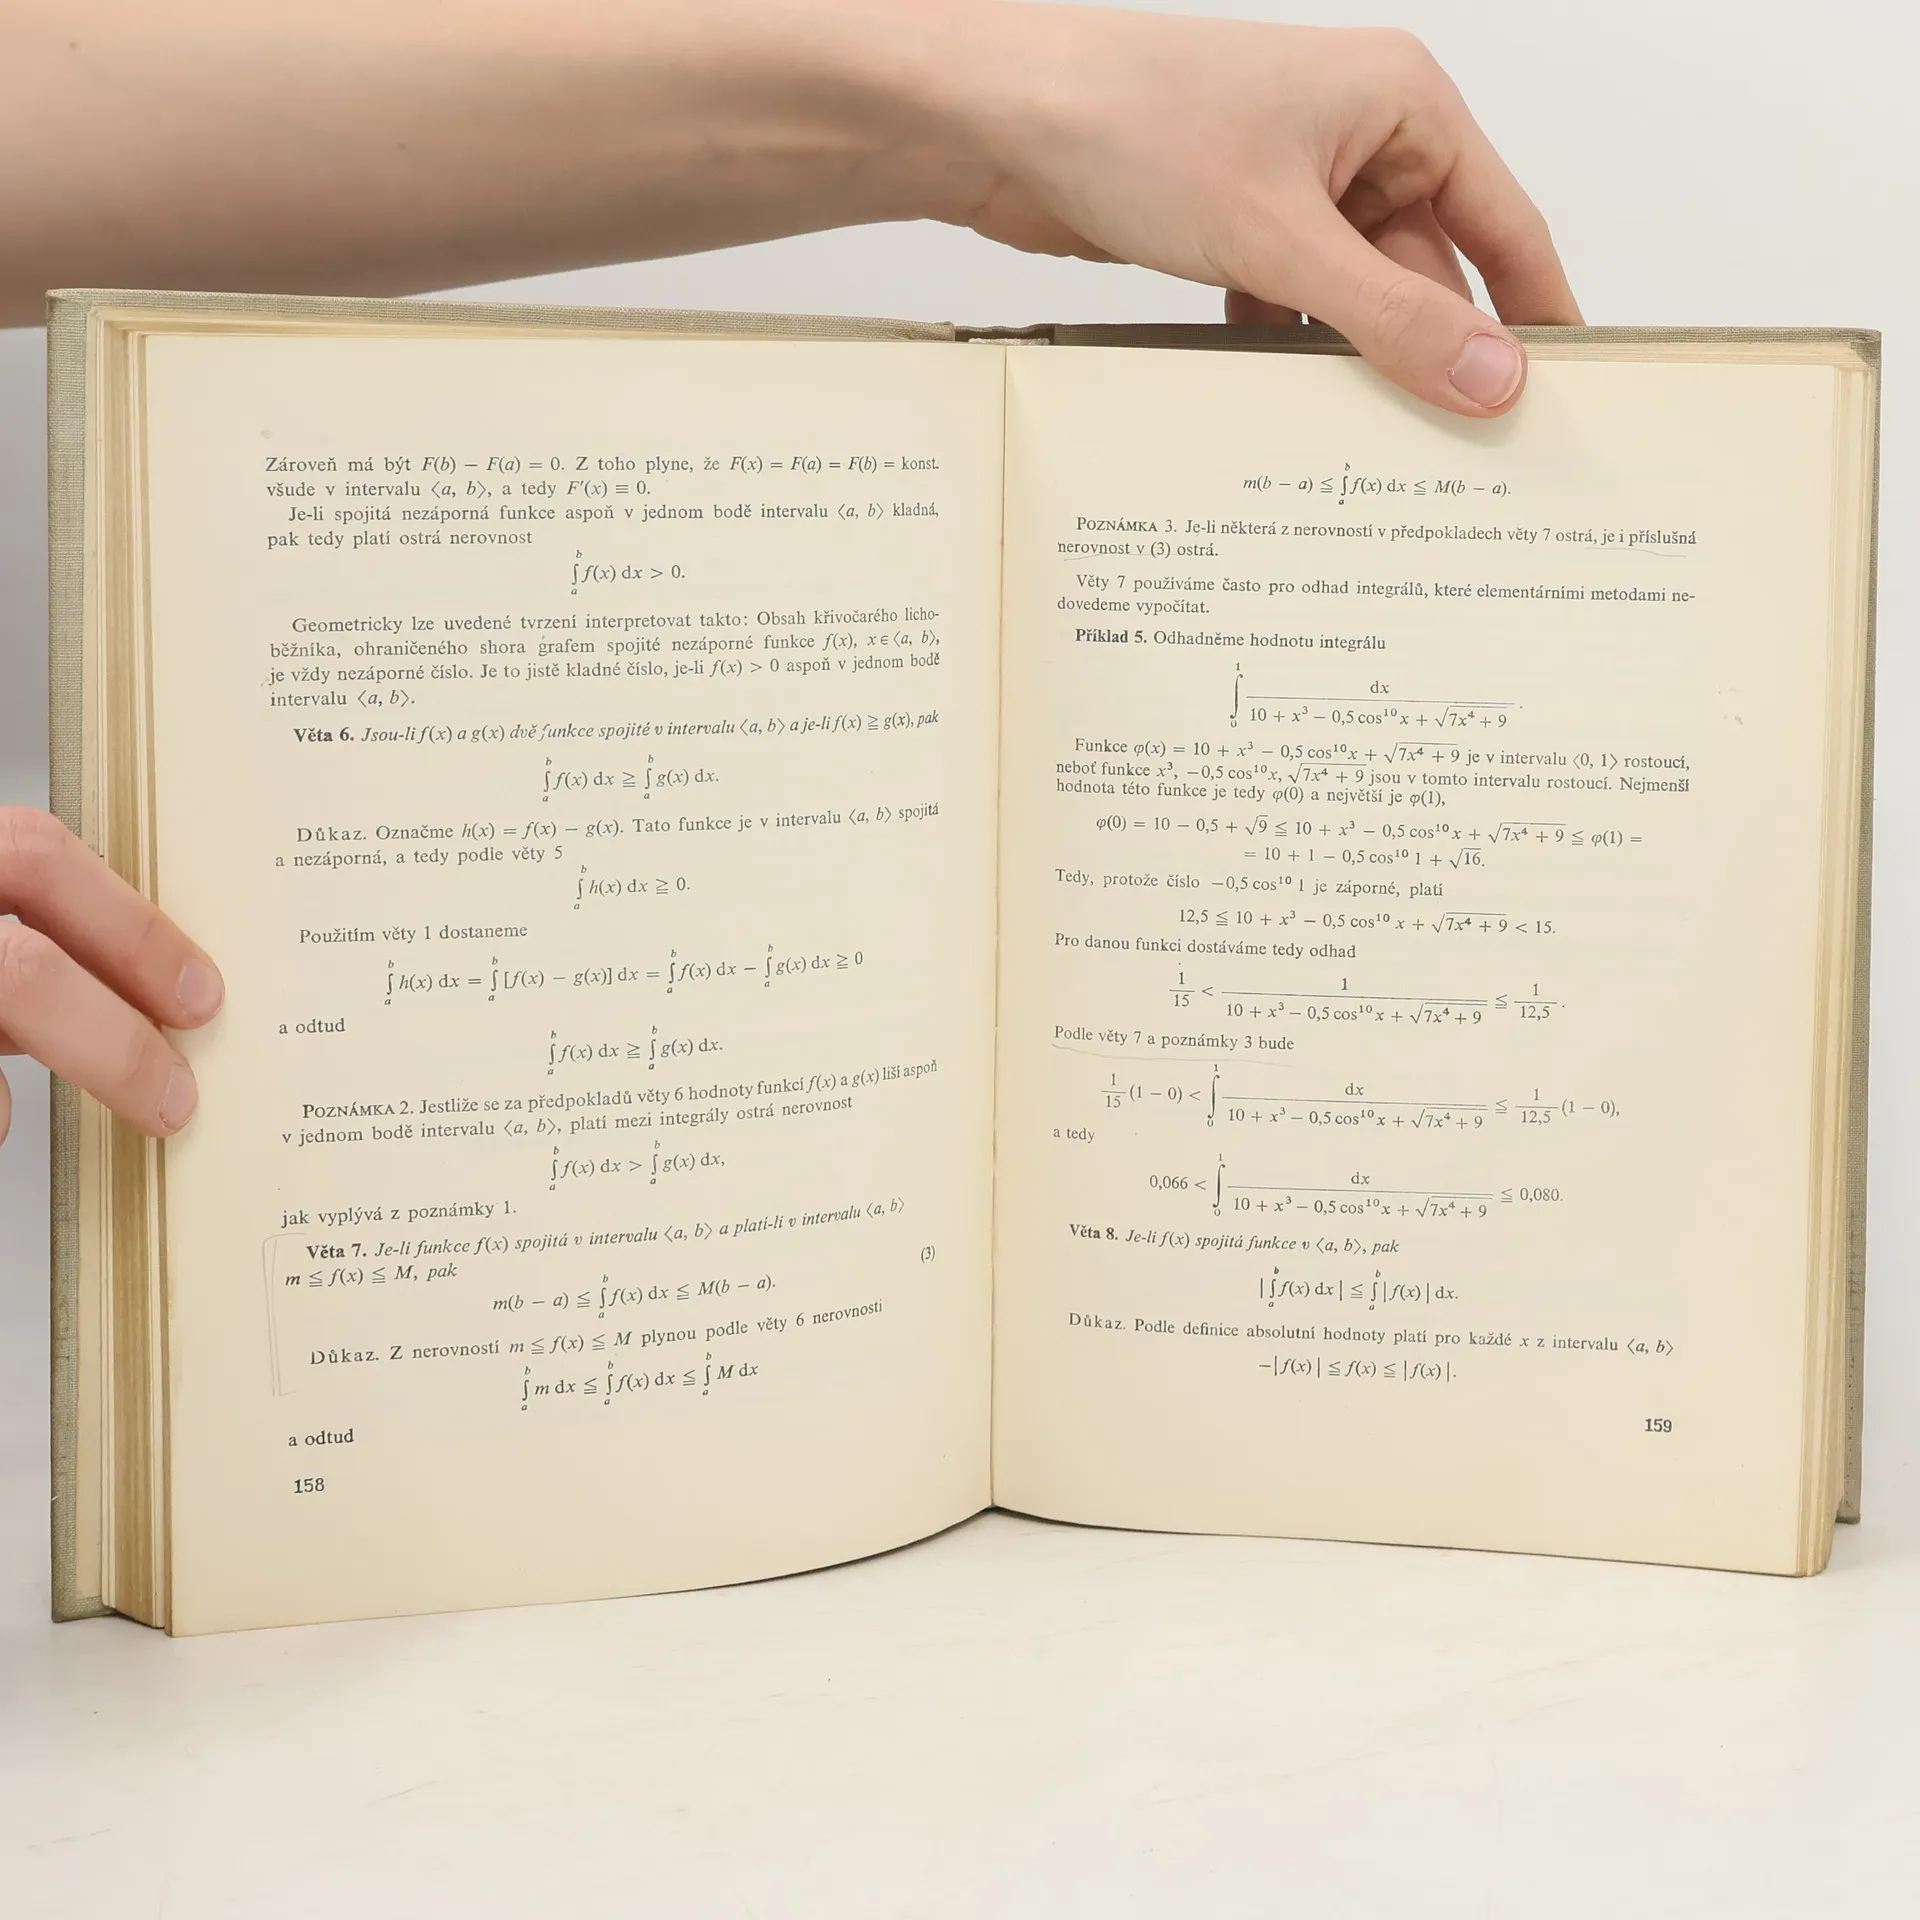 Zároveň má být F(b) − F(a) = 0. Z toho plyne, že F(x) = F(a) = F(b) = konst.
všude v intervalu ⟨a, b⟩, a tedy F′(x) ≡ 0.
Je-li spojitá nezáporná funkce aspoň v jednom bodě intervalu ⟨a, b⟩ kladná,
pak tedy platí ostrá nerovnost
∫_a^b f(x) dx > 0.
Geometricky lze uvedené tvrzení interpretovat takto: Obsah křivočarého licho-
běžníka, ohraničeného shora grafem spojité nezáporné funkce f(x), x ∈ ⟨a, b⟩,
je vždy nezáporné číslo. Je to jistě kladné číslo, je-li f(x) > 0 aspoň v jednom bodě
intervalu ⟨a, b⟩.
Věta 6. Jsou-li f(x) a g(x) dvě funkce spojité v intervalu ⟨a, b⟩ a je-li f(x) ≧ g(x), pak
∫_a^b f(x) dx ≧ ∫_a^b g(x) dx.
Důkaz. Označme h(x) = f(x) − g(x). Tato funkce je v intervalu ⟨a, b⟩ spojitá
a nezáporná, a tedy podle věty 5
∫_a^b h(x) dx ≧ 0.
Použitím věty 1 dostaneme
∫_a^b h(x) dx = ∫_a^b [f(x) − g(x)] dx = ∫_a^b f(x) dx − ∫_a^b g(x) dx ≧ 0
a odtud
∫_a^b f(x) dx ≧ ∫_a^b g(x) dx.
POZNÁMKA 2. Jestliže se za předpokladů věty 6 hodnoty funkcí f(x) a g(x) liší aspoň
v jednom bodě intervalu ⟨a, b⟩, platí mezi integrály ostrá nerovnost
∫_a^b f(x) dx > ∫_a^b g(x) dx,
jak vyplývá z poznámky 1.
Věta 7. Je-li funkce f(x) spojitá v intervalu ⟨a, b⟩ a platí-li v intervalu ⟨a, b⟩
m ≦ f(x) ≦ M, pak
m(b − a) ≦ ∫_a^b f(x) dx ≦ M(b − a). (3)
Důkaz. Z nerovností m ≦ f(x) ≦ M plynou podle věty 6 nerovnosti
∫_a^b m dx ≦ ∫_a^b f(x) dx ≦ ∫_a^b M dx
a odtud
158
m(b − a) ≦ ∫_a^b f(x) dx ≦ M(b − a).
POZNÁMKA 3. Je-li některá z nerovností v předpokladech věty 7 ostrá, je i příslušná
nerovnost v (3) ostrá.
Věty 7 používáme často pro odhad integrálů, které elementárními metodami ne-
dovedeme vypočítat.
Příklad 5. Odhadněme hodnotu integrálu
∫_0^1 dx / (10 + x³ − 0,5 cos¹⁰ x + √(7x⁴ + 9)).
Funkce φ(x) = 10 + x³ − 0,5 cos¹⁰ x + √(7x⁴ + 9) je v intervalu ⟨0, 1⟩ rostoucí,
neboť funkce x³, −0,5 cos¹⁰ x, √(7x⁴ + 9) jsou v tomto intervalu rostoucí. Nejmenší
hodnota této funkce je tedy φ(0) a největší je φ(1),
φ(0) = 10 − 0,5 + √9 ≦ 10 + x³ − 0,5 cos¹⁰ x + √(7x⁴ + 9) ≦ φ(1) =
= 10 + 1 − 0,5 cos¹⁰ 1 + √16.
Tedy, protože číslo −0,5 cos¹⁰ 1 je záporné, platí
12,5 ≦ 10 + x³ − 0,5 cos¹⁰ x + √(7x⁴ + 9) < 15.
Pro danou funkci dostáváme tedy odhad
1/15 < 1 / (10 + x³ − 0,5 cos¹⁰ x + √(7x⁴ + 9)) ≦ 1/12,5.
Podle věty 7 a poznámky 3 bude
1/15 (1 − 0) < ∫_0^1 dx / (10 + x³ − 0,5 cos¹⁰ x + √(7x⁴ + 9)) ≦ 1/12,5 (1 − 0),
a tedy
0,066 < ∫_0^1 dx / (10 + x³ − 0,5 cos¹⁰ x + √(7x⁴ + 9)) ≦ 0,080.
Věta 8. Je-li f(x) spojitá funkce v ⟨a, b⟩, pak
|∫_a^b f(x) dx| ≦ ∫_a^b |f(x)| dx.
Důkaz. Podle definice absolutní hodnoty platí pro každé x z intervalu ⟨a, b⟩
−|f(x)| ≦ f(x) ≦ |f(x)|.
159